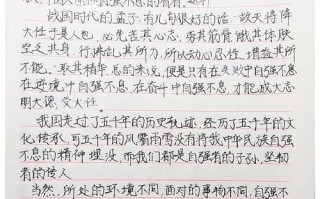 战国时代的孟子,有几句很好的话:"故天将降
大任于是人也,必先苦其心志,劳其筋骨,饿其体肤
空乏其身,行拂乱其所为,所以动心忍性,增益其所
不能。"取其精华,总的来说,便是只有在失败中自强不息
在逆境中自强不息,在奋斗中自强不息,才能成大志
明大德,受大任。
我国走过了五千年的历史轨迹,经历了五千年的文
化传承,可五千年的风霜雨雪没有将我中华民族自强
不息的精神埋没,而我们都是自强者的子孙,坚韧
者的传人
当然,所处的环境不同,面对的事物不同,自强不